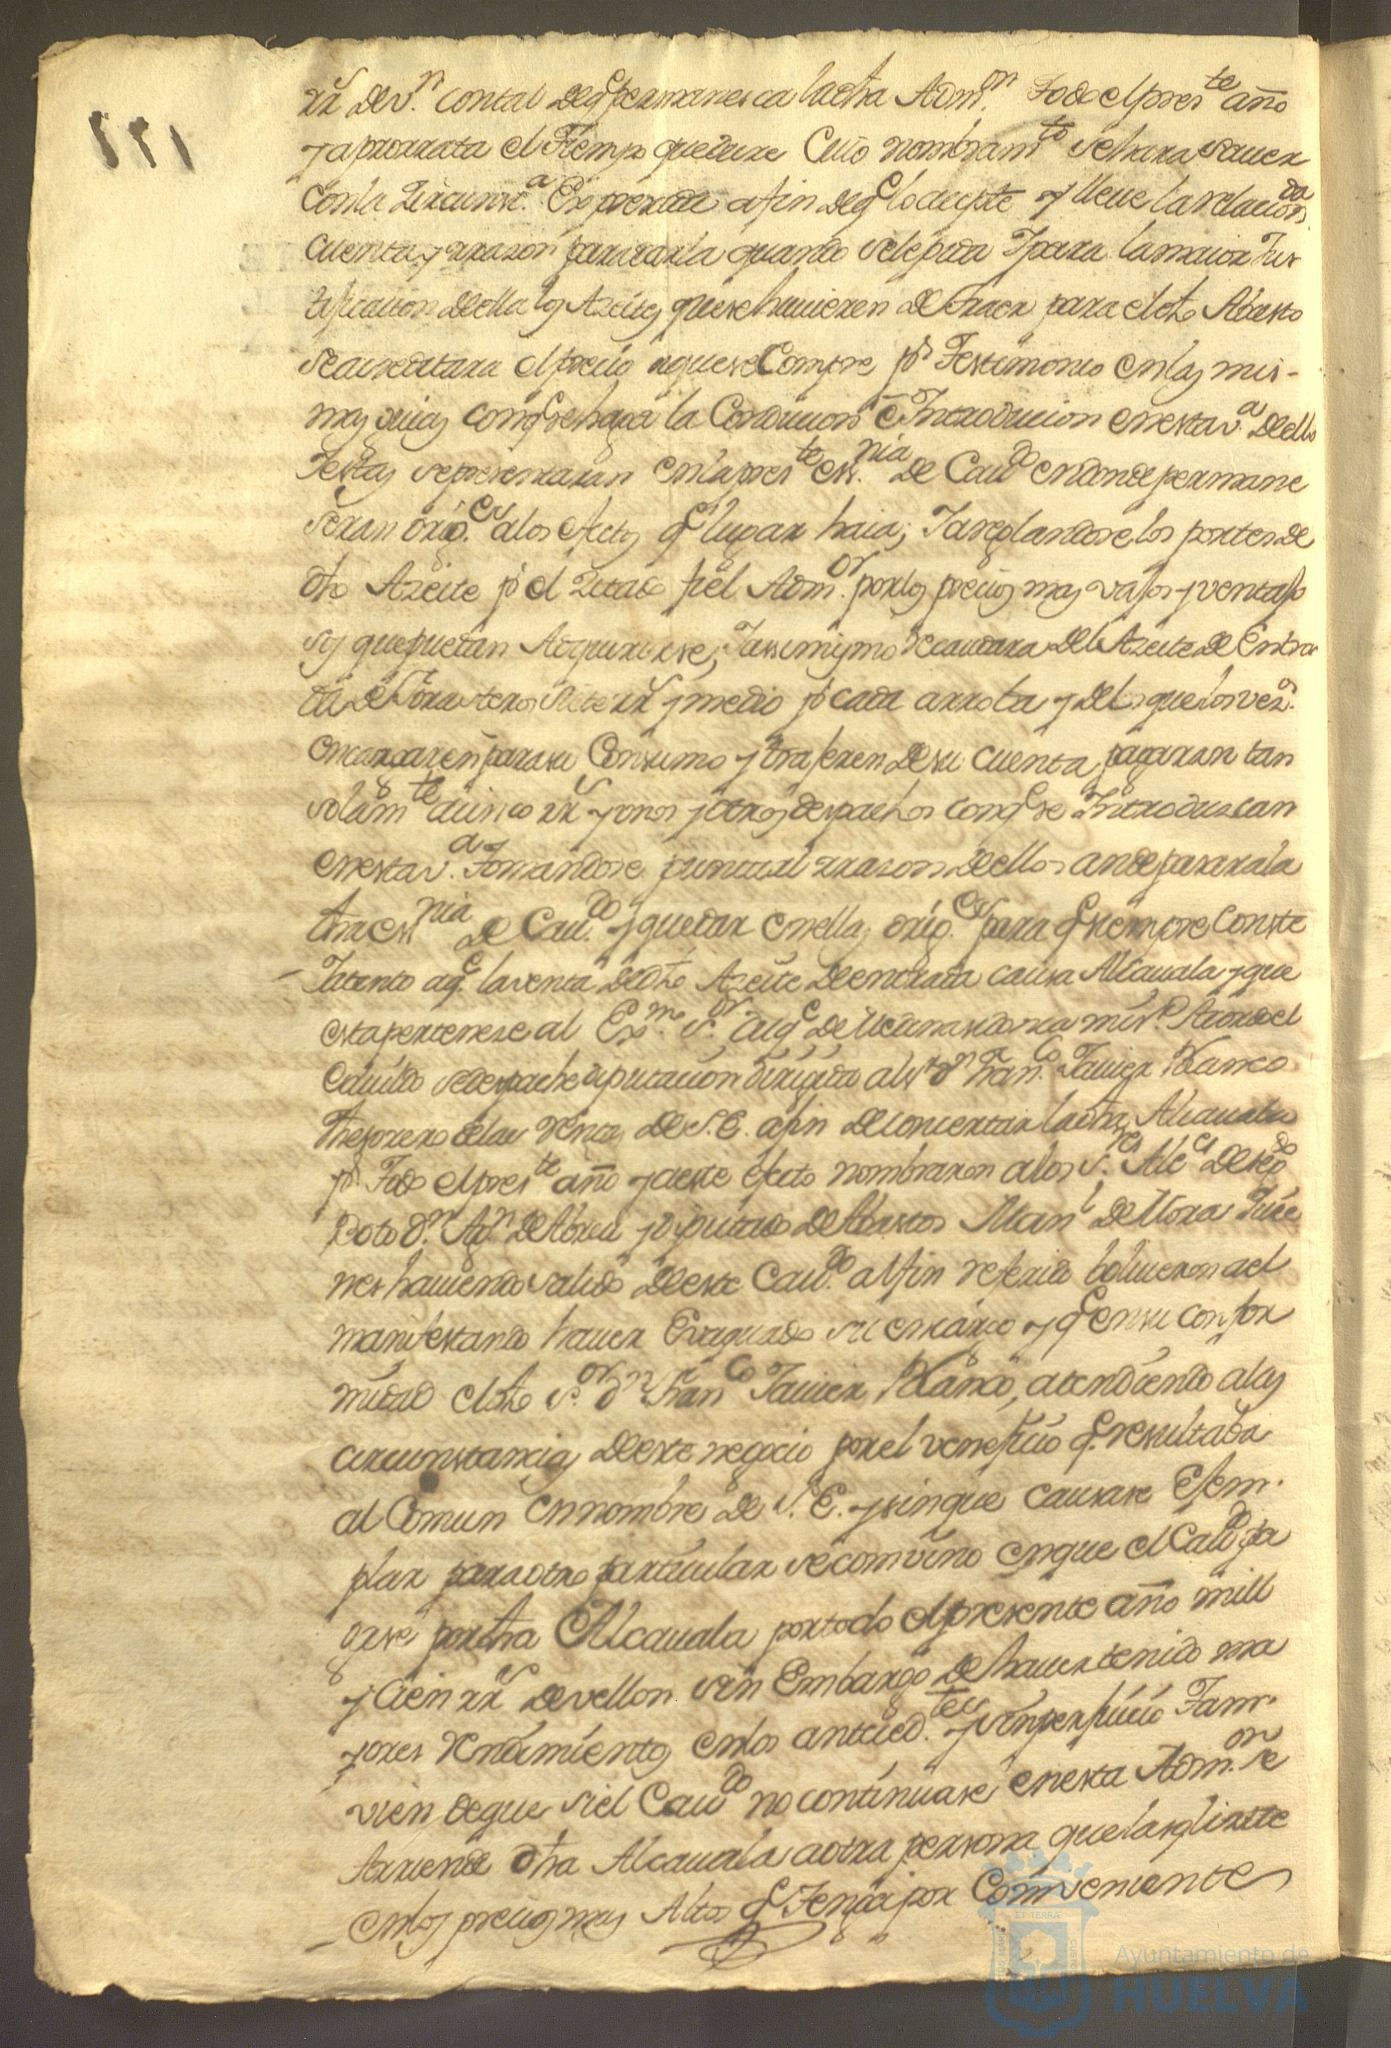 rr.s de v.n con tal de q.e permanesca la dha Adm.on todo el pres.te año
y a prorrata el tiempo que dure cuio nombram.to se hara sauer
con la zircunst.a Expresada a fin de q.e lo acepte y lleve la relacion da
cuenta y rrazon para darla quando se le pida Y para la maior Jus
tificacion de ella los Azeites que se huuieren de traer para el dho Abasto
se acreditara el precio a que se Compre p.r Testimonio en las mis-
mas guias con q.e se haga la Conducion e Introducion en esta v.a de ello
Y estas se presentaran en la pres.te ess.nia de Cau.do en donde permane
seran orig.es a los efectos q.e lugar haia; Y areglandose los portes de
dho Azeite p.r el Zitado fiel Adm.or por los precios mas vajos y ventajo
sos que puedan Adquirirse; Y assimismo recaudara del Azeite de Entra
da de forasteros siete rr.s y medio p.r cada arroba y de los que los vez.s
encargaren para su Consumo y trajeren de su cuenta, pagaran tan
solam.te cinco rr.s y unos y otros despachos con q.e se Introduzcan
en esta v.a tomandose puntual rrazon de ellos an de parar a la
dha ess.nia de Cau.do y quedar en ella orig.es para q.e siempre conste
Y atento a q.e la venta de dho Azeite de entrada causa Alcauala y que
esta pertenese al Ex.mo s.or Duq.e de Medinasidonia mi s.r Acordo el
Cauildo se despache diputacion dirijida al s.r d.n Fran.co Xauier Blanco
Thesorero de las rentas de S.E. a fin de concertar la dha Alcauala
p.r todo el pres.te año y a este efecto nombraron a los s.res Alc.es de seg.do
Boto d.n Ag.n de Abreu y diputado de Abastos Man.l de Mora Quie
nes hauiendo salido de este Cau.do al fin referido bolvieron a el
manifestando hauer Evaquado su encargo y q.e en su confor
midad el dho s.or d.n Fran.co Xauier Blanco, atendiendo a las
circunstancias de este negocio por el veneficio q.e resultaba
al Comun en nombre de S.E. y sin que causase Ejem-
plar para otro particular se convino en que el Cau.do pa
gase por dha Alcauala por todo el presente año mill
y cien rr.s de vellon sin Embargo de hauer tenido ma
yores rendimientos en los anteced.tes y sin perjuicio Tam-
vien de que si el Cau.do no continuase en esta Adm.on se
Arriende dha Alcauala a otra persona que la solizite
en los precios mas Altos q.e tenga por Conveniente
Ayuntamiento de
HUELVA